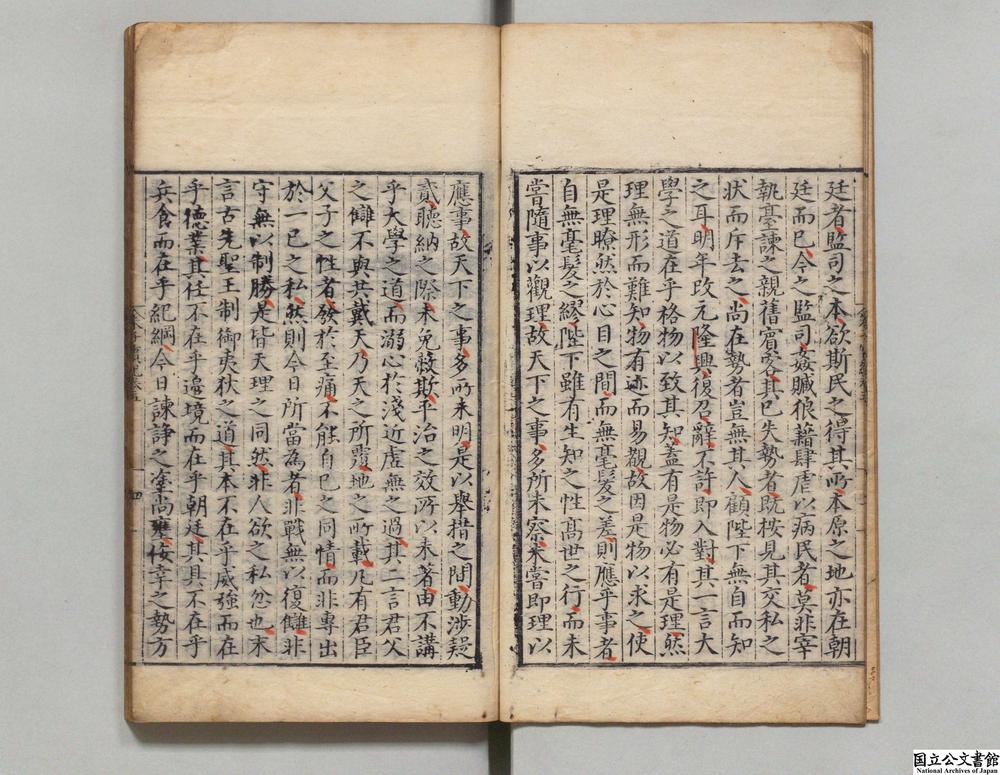 廷者監司之本欲斯民之得其所本原之地亦在朝
廷而已今之監司姦贓狼藉肆虐以病民者莫非宰
執臺諫之親舊賓客其已失勢者既按見其交私之
状而斥去之尚在勢者豈無其人顧陛下無自而知
之耳明年改元隆興復召辭不許即入對其一言大
學之道在乎格物以致其知蓋有是物必有是理然
理無形而難知物有迹而易覩故因是物以求之使
是理瞭然於心目之間而無毫髮之差則應乎事者
自無毫髮之繆陛下雖有生知之性髙世之行而未
嘗隨事以觀理故天下之事多所未察未嘗即理以
應事故天下之事多所未明是以舉措之間動涉疑
貳聽納之際未免蔽欺平治之效所以未著由不講
乎大學之道而溺心於淺近虚無之過其二言君父
之讎不與共戴天乃天之所覆地之所載凡有君臣
父子之性者發於至痛不能自已之同情而非專出
於一己之私然則今日所當為者非戰無以復讎非
守無以制勝是皆天理之同然非人欲之私忿也末
言古先聖王制御夷狄之道其本不在乎威強而在
乎德業其任不在乎邊境而在乎朝廷其具不在乎
兵食而在乎紀綱今日諫諍之塗尚壅佞幸之勢方
四
国立公文書館
National Archives of Japan